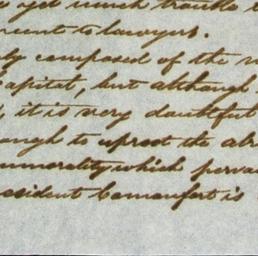 yet much trouble
to lawyers.
composed of the
Capital, but although
, it is very doubtful
to uproot the
immorality which
resident Comonfort is